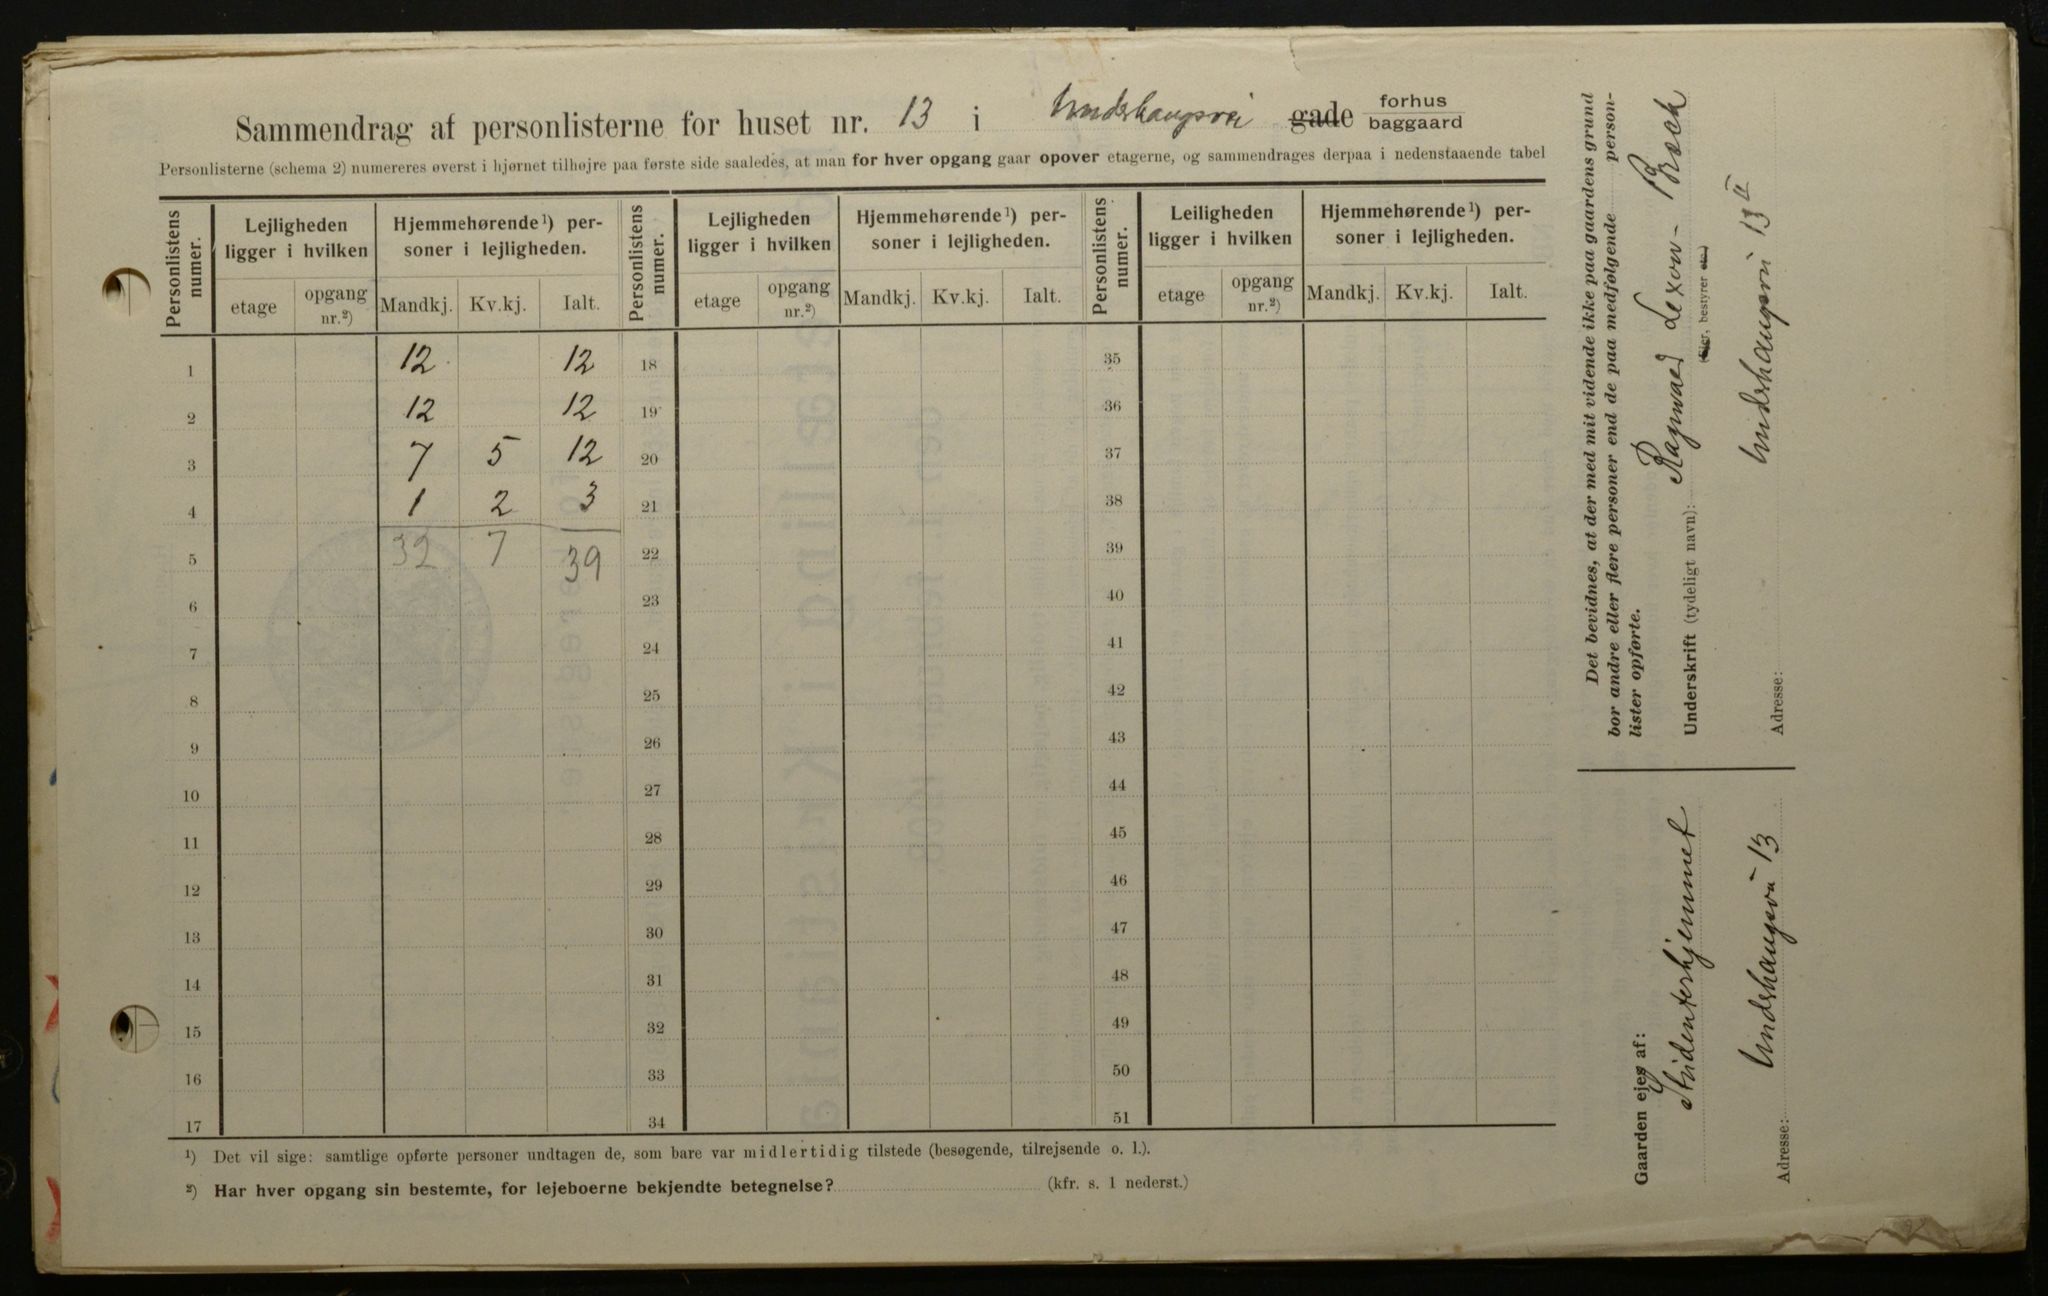 Sammendrag af personlisterne for huset nr. 13 i Underhaugsvei gade forhus baggaard
Personlisterne (schema 2) numereres øverst i hjørnet tilhøjre paa første side saaledes, at man for hver opgang gaar opover etagerne, og sammendrages derpaa i nedenstaaende tabel
Personlistens numer. Lejligheden ligger i hvilken Hjemmehørende¹) personer i lejligheden. Personlistens numer. Lejligheden ligger i hvilken Hjemmehørende¹) personer i lejligheden. Personlistens numer. Leiligheden ligger i hvilken Hjemmehørende¹) personer i lejligheden.
etage opgang nr.²) Mandkj. Kv.kj. Ialt. etage opgang nr.²) Mandkj. Kv.kj. Ialt. etage opgang nr.²) Mandkj. Kv.kj. Ialt.
1 12 12 18 35
2 12 12 19 36
3 7 5 12 20 37
4 1 2 3 21 38
5 32 7 39 22 39
6 23 40
7 24 41
8 25 42
9 26 43
10 27 44
11 28 45
12 29 46
13 30 47
14 31 48
15 32 49
16 33 50
17 34 51
¹) Det vil sige: samtlige opførte personer undtagen de, som bare var midlertidig tilstede (besøgende, tilrejsende o. l.).
²) Har hver opgang sin bestemte, for lejeboerne bekjendte betegnelse? (kfr. s. 1 nederst.)
Det bevidnes, at der med mit vidende ikke paa gaardens grund
bor andre eller flere personer end de paa medfølgende person-
lister opførte.
Underskrift (tydeligt navn): Ragnvard Lexow-
(Ejer, bestyrer etc.)
Adresse: Underhaugsvei 13 II
Gaarden ejes af:
Studenterhjemmet
Adresse: Underhaugsvei 13